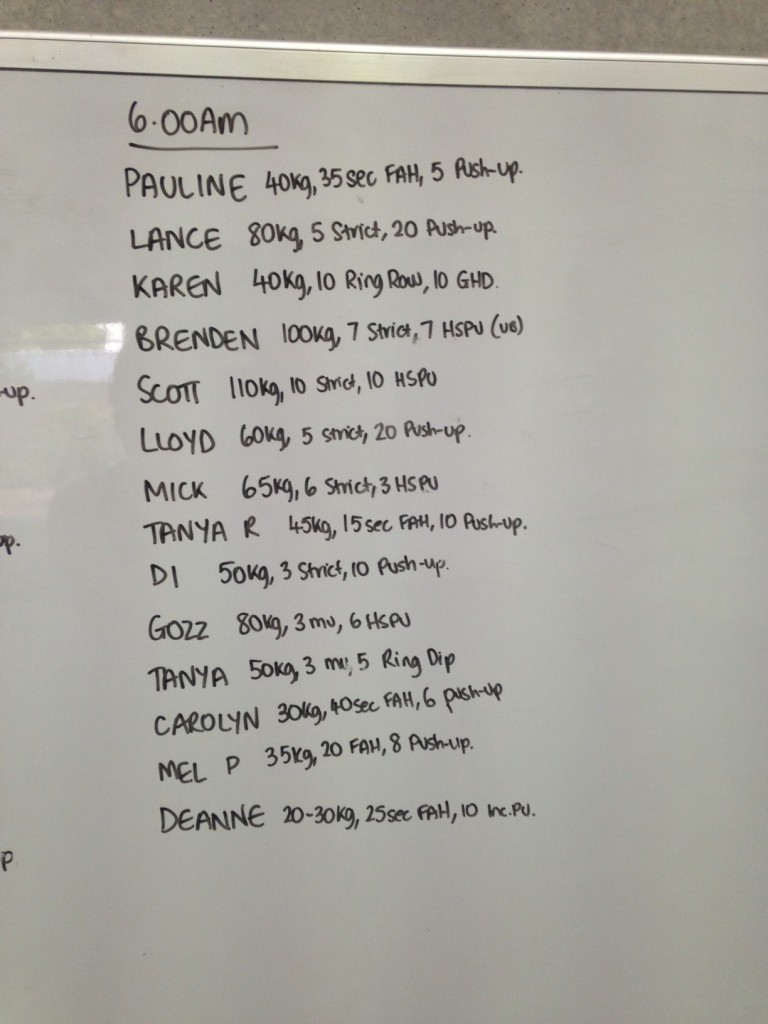 6.00AM
PAULINE 40kg, 35sec FAH, 5 Push-up.
LANCE 80kg, 5 Strict, 20 Push-up.
KAREN 40kg, 10 Ring Row, 10 GHD.
BRENDEN 100kg, 7 Strict, 7 HSPU (UB)
SCOTT 110kg, 10 Strict, 10 HSPU
-up.
LLOYD 60kg, 5 strict, 20 Push-up.
MICK 65kg, 6 Strict, 3 HSPU
TANYA R 45kg, 15sec FAH, 10 Push-up.
up.
DI 50kg, 3 Strict, 10 Push-up.
GOZZ 80kg, 3 mu, 6 HSPU
TANYA 50kg, 3 mu, 5 Ring Dip
CAROLYN 30kg, 40sec FAH, 6 push-up
MEL P 35kg, 20 FAH, 8 Push-up.
DEANNE 20-30kg, 25sec FAH, 10 Inc.PU.
P